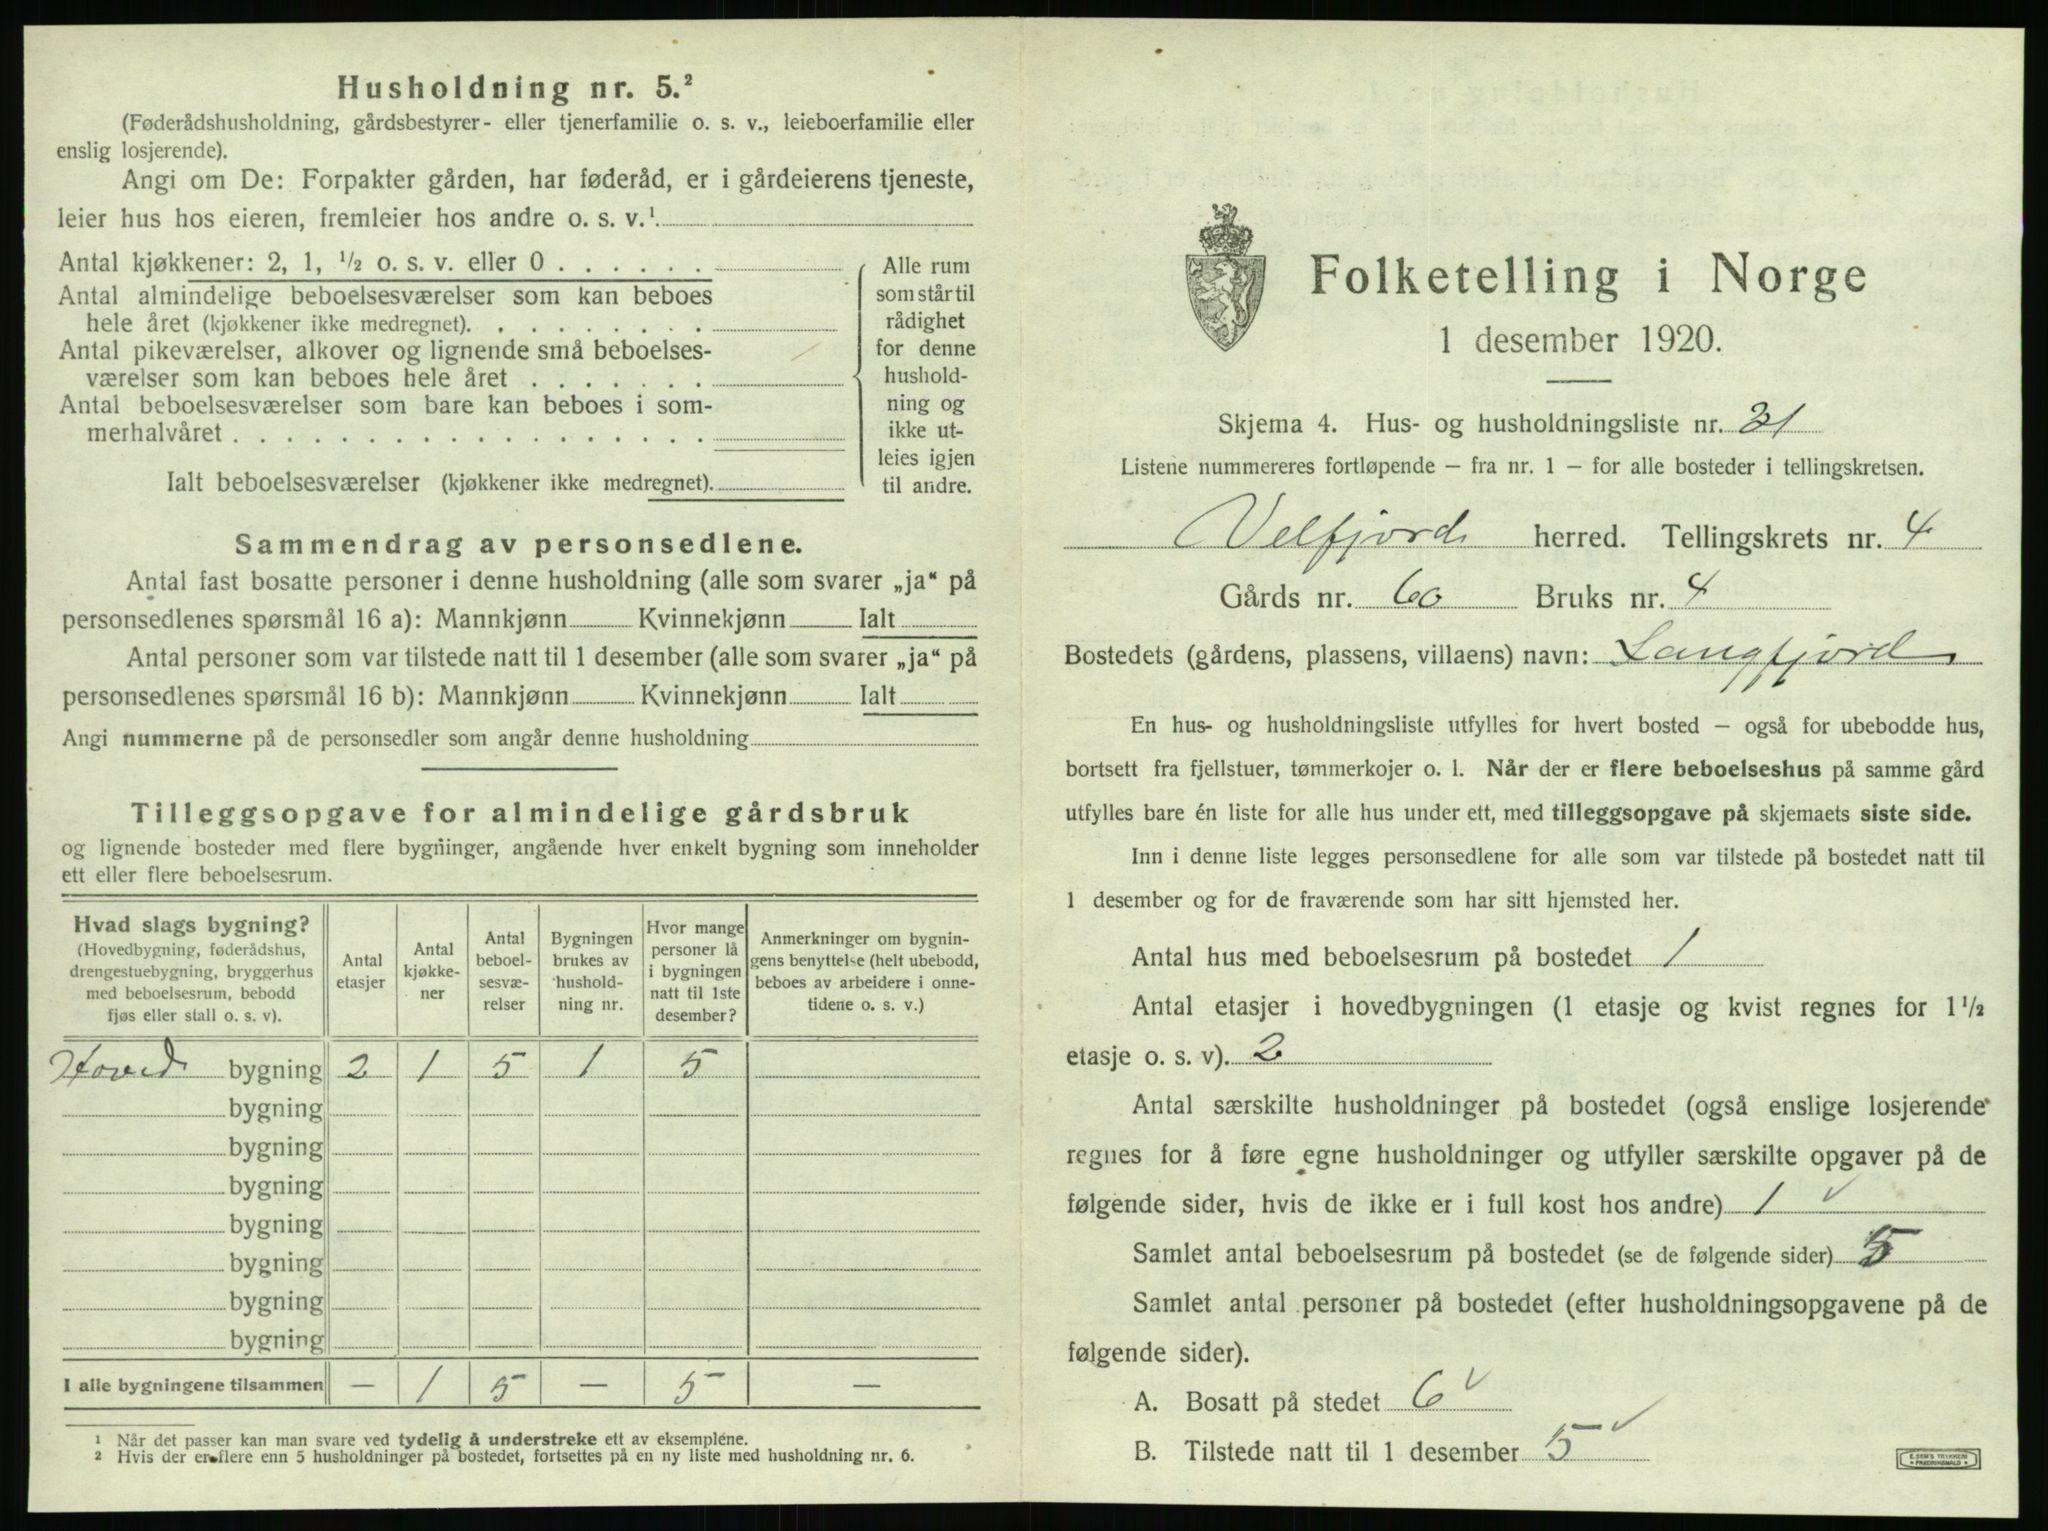 Husholdning nr. 5.²
(Føderådshusholdning, gårdsbestyrer- eller tjenerfamilie o. s. v., leieboerfamilie eller
enslig losjerende).
Angi om De: Forpakter gården, har føderåd, er i gårdeierens tjeneste,
leier hus hos eieren, fremleier hos andre o. s. v.¹
Antal kjøkkener: 2, 1, ½ o. s. v. eller 0 . . . . . .
Antal almindelige beboelsesværelser som kan beboes
hele året (kjøkkener ikke medregnet). . . . . . . . .
Antal pikeværelser, alkover og lignende små beboelses-
værelser som kan beboes hele året . . . . . . .
Antal beboelsesværelser som bare kan beboes i som-
merhalvåret . . . . . . . . . . . . . . . . . .
Ialt beboelsesværelser (kjøkkener ikke medregnet).
Alle rum
som står til
rådighet
for denne
hushold-
ning og
ikke ut-
leies igjen
til andre.
Sammendrag av personsedlene.
Antal fast bosatte personer i denne husholdning (alle som svarer „ja“ på
personsedlenes spørsmål 16 a): Mannkjønn Kvinnekjønn Ialt
Antal personer som var tilstede natt til 1 desember (alle som svarer „ja“ på
personsedlenes spørsmål 16 b): Mannkjønn Kvinnekjønn Ialt
Angi nummerne på de personsedler som angår denne husholdning
Tilleggsopgave for almindelige gårdsbruk
og lignende bosteder med flere bygninger, angående hver enkelt bygning som inneholder
ett eller flere beboelsesrum.
Hvad slags bygning?
(Hovedbygning, føderådshus,
drengestuebygning, bryggerhus
med beboelsesrum, bebodd
fjøs eller stall o. s. v).
Antal
etasjer
Antal
kjøkke-
ner
Antal
beboel-
sesvæ-
relser
Bygningen
brukes av
hushold-
ning nr.
Hvor mange
personer lå
i bygningen
natt til 1ste
desember?
Anmerkninger om bygnin-
gens benyttelse (helt ubebodd,
beboes av arbeidere i onne-
tidene o. s. v.)
Hoved bygning 2 1 5 1 5
bygning
bygning
bygning
bygning
bygning
bygning
bygning
I alle bygningene tilsammen — 1 5 — 5 —
¹ Når det passer kan man svare ved tydelig å understreke ett av eksemplene.
² Hvis der er flere enn 5 husholdninger på bostedet, fortsettes på en ny liste med husholdning nr. 6.
Folketelling i Norge
1 desember 1920.
Skjema 4. Hus- og husholdningsliste nr. 21
Listene nummereres fortløpende – fra nr. 1 – for alle bosteder i tellingskretsen.
Velfjord herred. Tellingskrets nr. 4
Gårds nr. 60 Bruks nr. 4
Bostedets (gårdens, plassens, villaens) navn: Langfjord
En hus- og husholdningsliste utfylles for hvert bosted – også for ubebodde hus,
bortsett fra fjellstuer, tømmerkojer o. l. Når der er flere beboelseshus på samme gård
utfylles bare én liste for alle hus under ett, med tilleggsopgave på skjemaets siste side.
Inn i denne liste legges personsedlene for alle som var tilstede på bostedet natt til
1 desember og for de fraværende som har sitt hjemsted her.
Antal hus med beboelsesrum på bostedet 1
Antal etasjer i hovedbygningen (1 etasje og kvist regnes for 1½
etasje o. s. v). 2
Antal særskilte husholdninger på bostedet (også enslige losjerende
regnes for å føre egne husholdninger og utfyller særskilte opgaver på de
følgende sider, hvis de ikke er i full kost hos andre) 1 ✓
Samlet antal beboelsesrum på bostedet (se de følgende sider) 5
Samlet antal personer på bostedet (efter husholdningsopgavene på de
følgende sider).
A. Bosatt på stedet 6 ✓
B. Tilstede natt til 1 desember 5 ✓